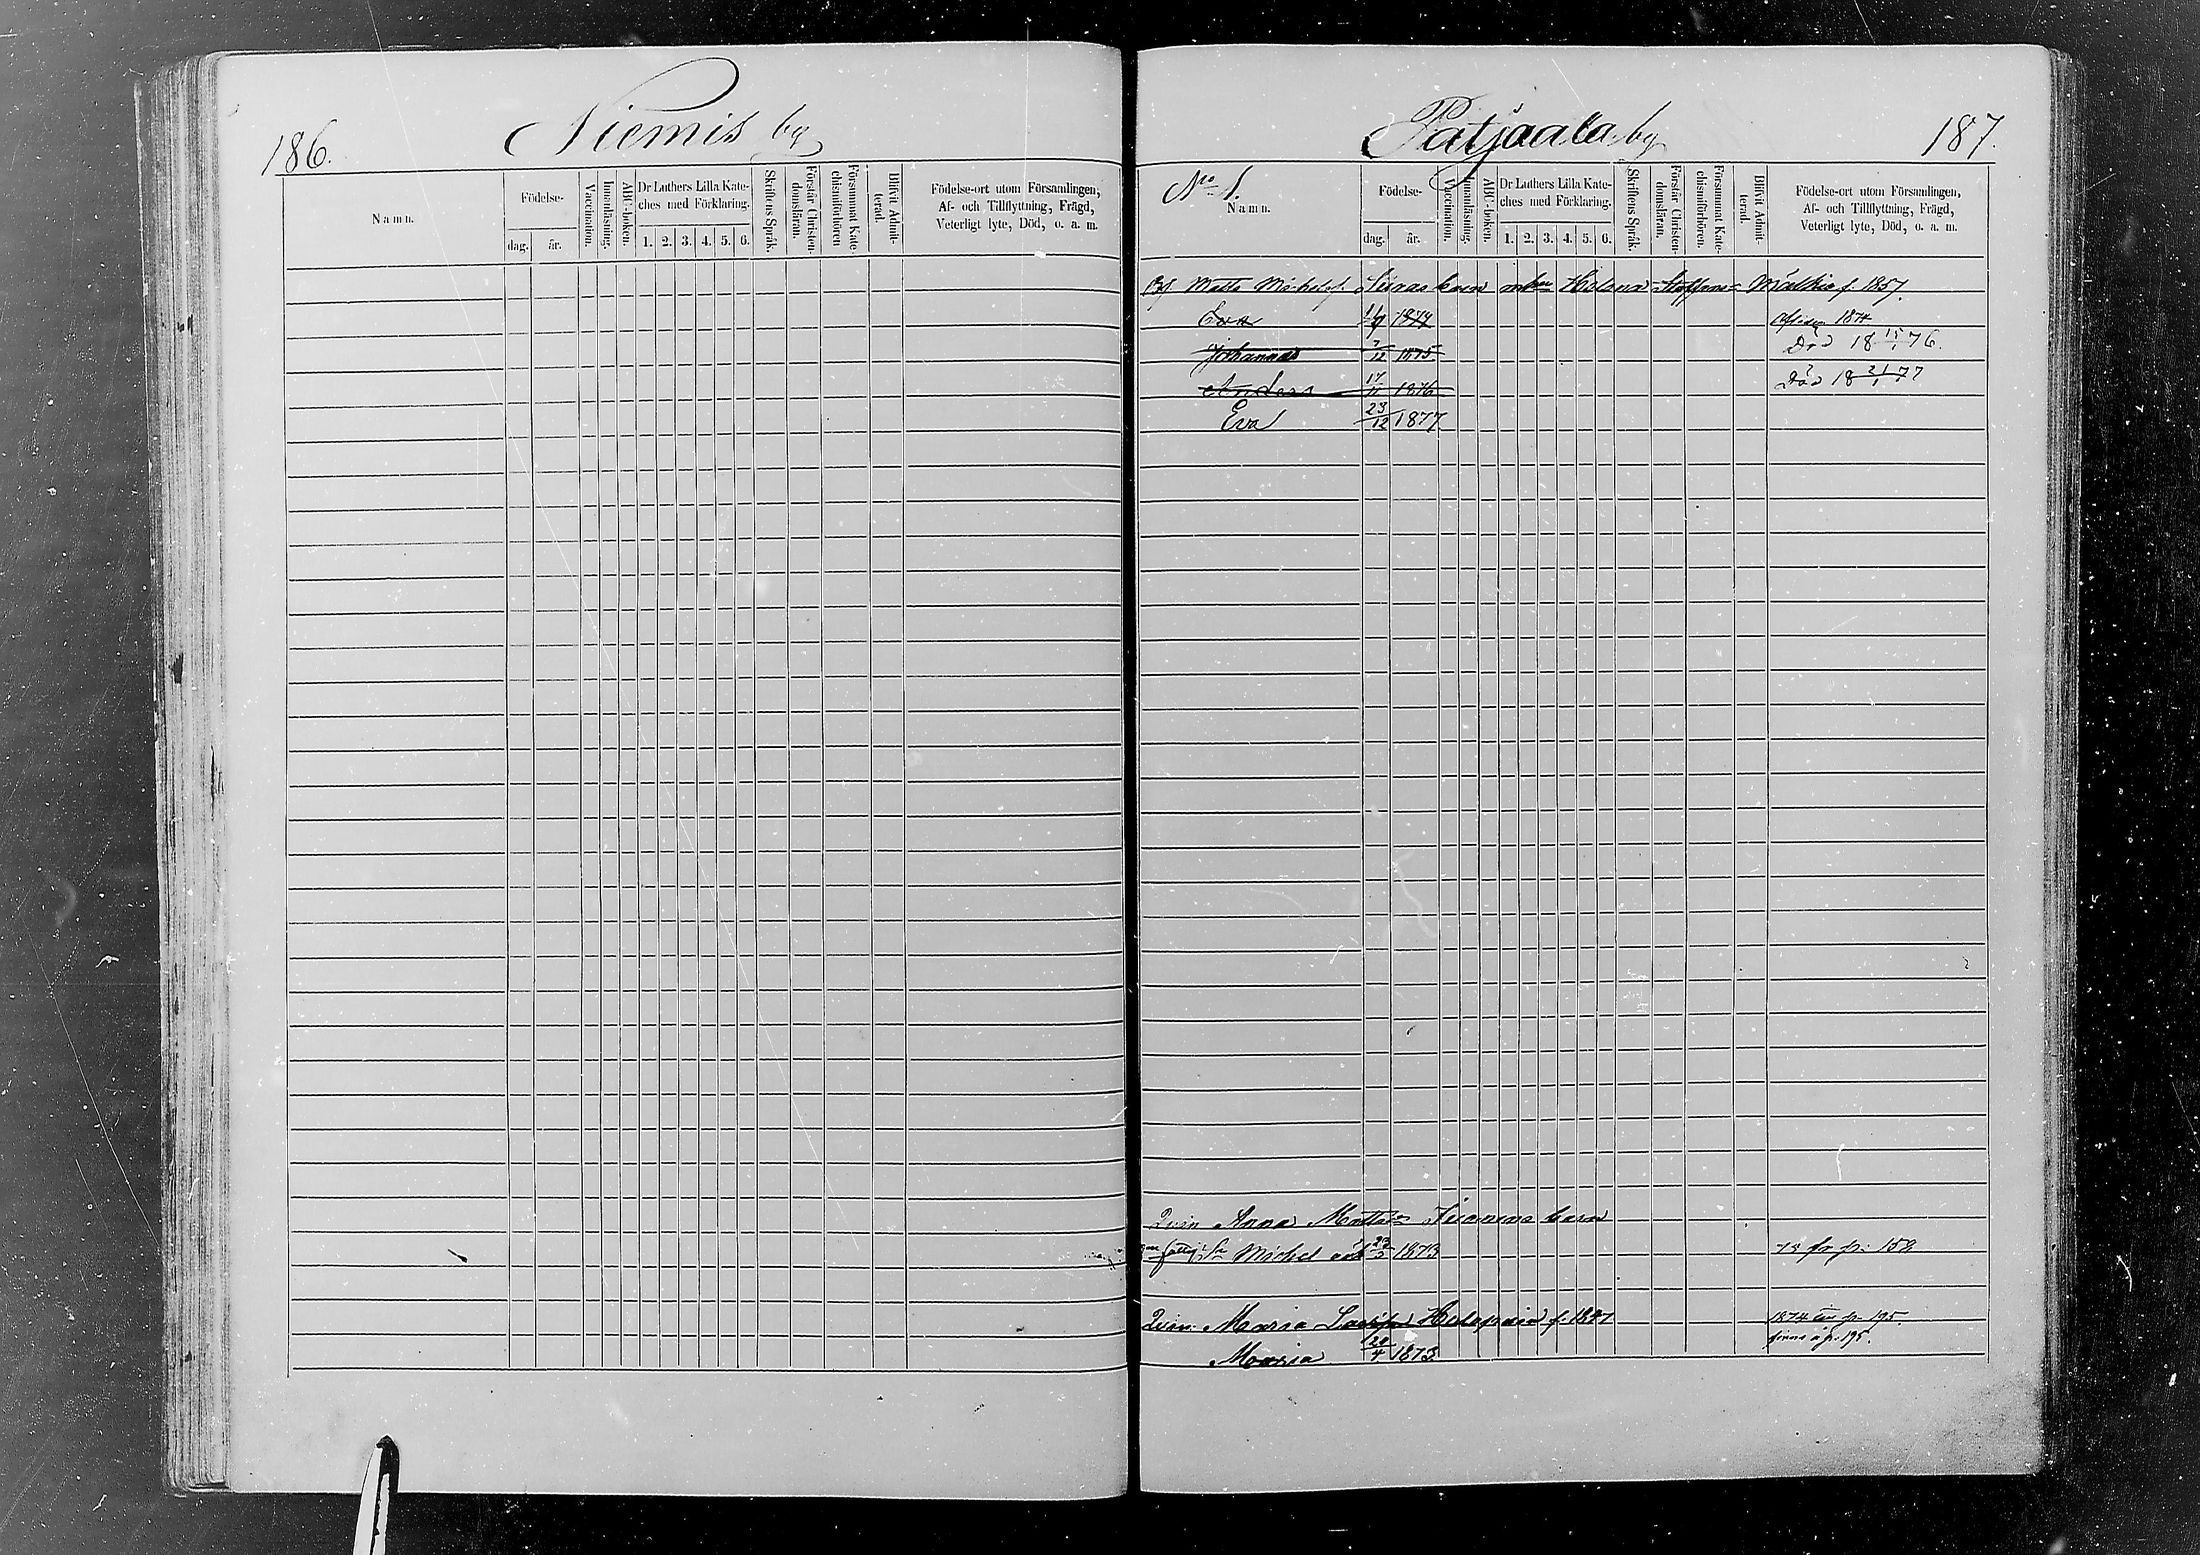 186.
Niemis by
Namn.
Födelse-
dag. år.
Vaccination.
Innanläsning.
ABC-boken.
Dr Luthers Lilla Kate-
ches med Förklaring.
1. 2. 3. 4. 5. 6.
Skriftens Språk.
Förstår Christen-
domsläran.
Försummat Kate-
chismiförhören
Blifvit Admit-
terad.
Födelse-ort utom Församlingen,
Af- och Tillflyttning, Frägd,
Veterligt lyte, Död, o. a. m.
Patjaala by
187.
No 1.
Namn.
Födelse-
dag. år.
Vaccination.
Innanläsning.
ABC-boken.
Dr Luthers Lilla Kate-
ches med Förklaring.
1. 2. 3. 4. 5. 6.
Skriftens Språk.
Förstår Christen-
domsläran.
Försummat Kate-
chismiförhören
Blifvit Admit-
terad.
Födelse-ort utom Församlingen,
Af- och Tillflyttning, Frägd,
Veterligt lyte, Död, o. a. m.
Matts Michelsf. barn Helena Staffans f. 1857.
Eva 1874 1874
Johannes 7/12 1875 Död 18 15/1 76.
Anders 17/11 1876 Död 18 21/1 77
Eva 23/12 1877
Anna Matts barn
Michel 1873 fr p: 158
Maria Holopain f. 1847 1874 fr p. 195.
Maria 20/4 1873 finns å p. 195.